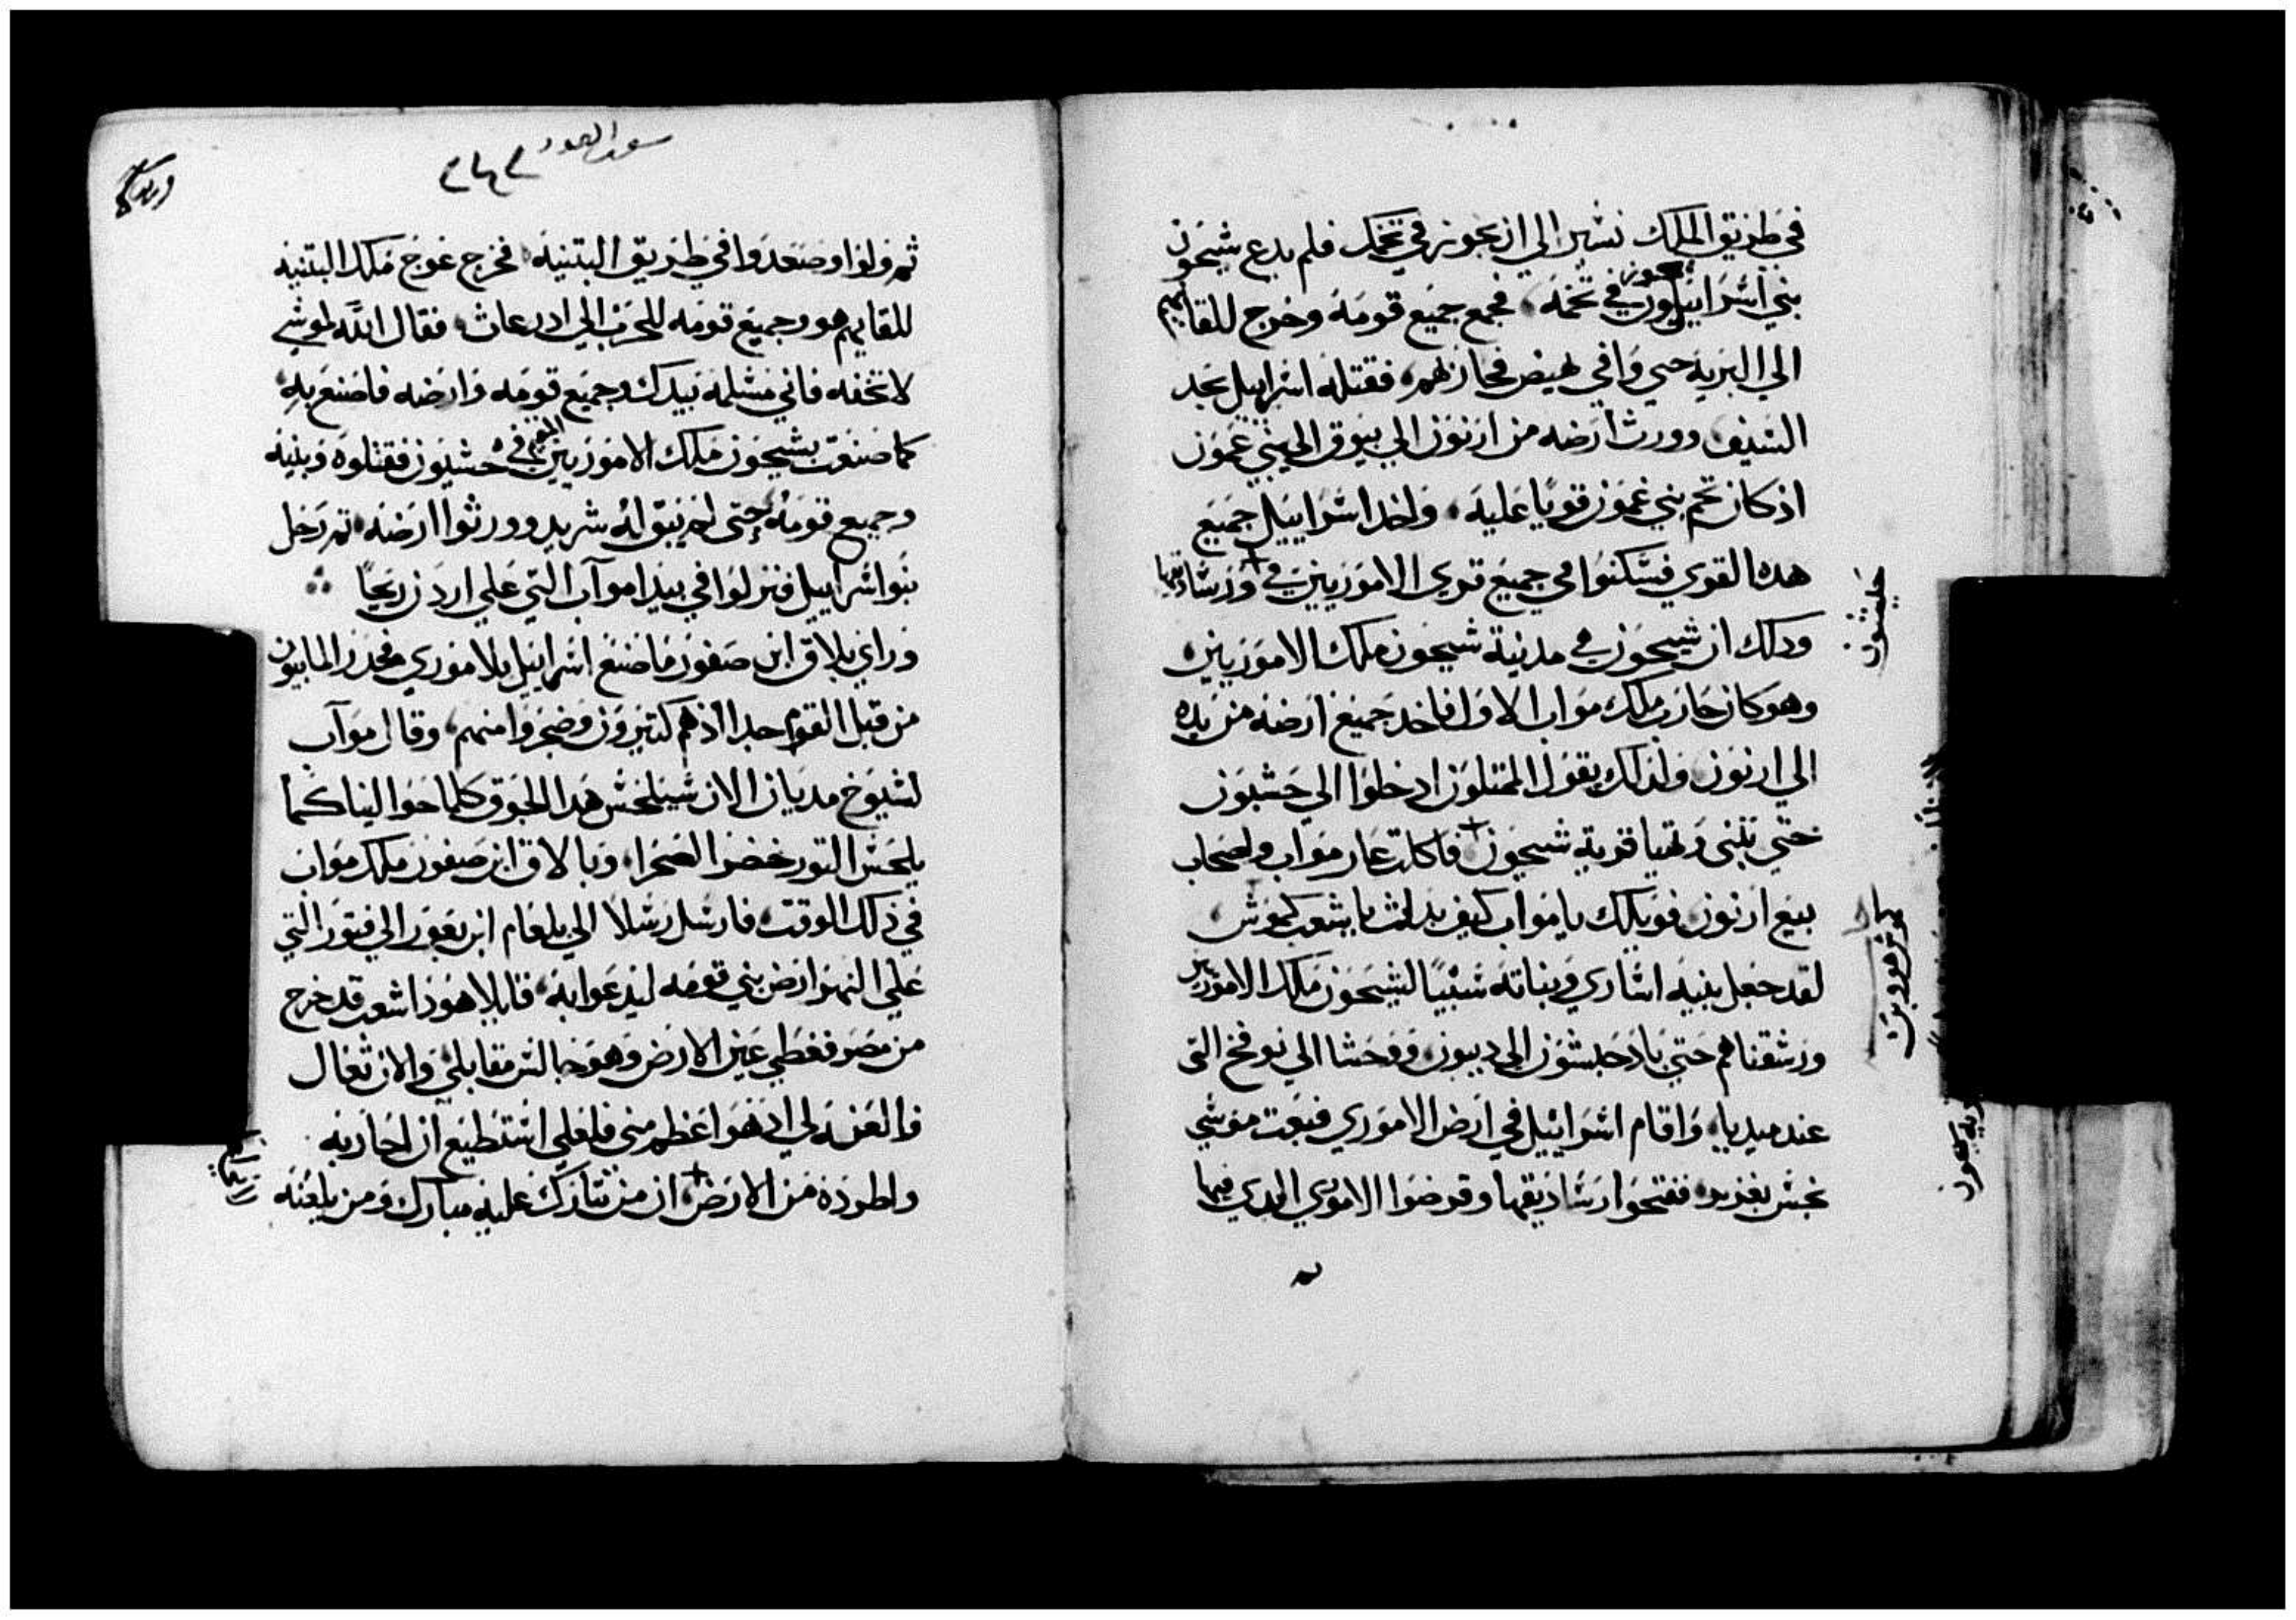 في طريق الملك نسير الي ان نجوز في تخمك فلم يدع شيحون
بني اسرائيل يجوز في تخمه، فجمع جميع قومه وخرج للقايهم
الي البريه حتي وافي يهيص فحاربهم، فقتله اسراييل بحد
السيف وورث ارضه من ارنون الي يبوق الي بني عمون
اذ كان تخم بني عمون قويا عليه، واخد اسراييل جميع
هده القري فسكنوا في جميع قري الاموريين في ورساتيقها
حشبون
ودلك ان شيحون في مدينة شيحون ملك الاموريين
وهو كان حارب ملك مواب الاول فاخد جميع ارضه من يده
الي ارنون ولدلك يقول الممتلون ادخلوا الي حشبون
حتي تبنى وتهيا قرية شيحون فاكلت عار مواب واصحاب
بيع ارنون فويلك يا مواب كيف بدلت يا شعب كموش
لقد جعل بنيه اشاري وبناته سبيا لشيحون ملك الاموريين
ورشقناهم حتي باد حبشون الي ديبون، ووحشا الي نوفخ التى
عند ميدبا، واقام اسراييل في ارض الاموري فبعت موسي
بجس يعزير، ففتحوا رساتيقها وقرضوا الاموري الدي فيها
ثم ولوا وصعدوا في طريق البتنيه فخرج عوج ملك البتنيه
للقايهم هو وجميع قومه للحرب الي ادرعات، فقال الله لموسي
لا تخفه فاني مسلمه بيدك وجميع قومه وارضه فاصنع به
كما صنعت بشيحون ملك الاموريين المقيم في حشبون فقتلوه وبنيه
وجميع قومه حتى لم يبق له شريد وورثوا ارضه، تم رحل
بنوا اسراييل فنزلوا في بيدا موآب التي علي اردن ريحا
وراي بلاق ابن صفور ما صنع اسراييل بالاموري فحدر المابيون
من قبل القوم جدا اذ هم كتيرون وضجروا منهم، وقال موآب
لشيوخ مديان الان سيلحس هدا الجوق كلما حوالينا كما
يلحس التور خضر الصحرا، وبالاق ابن صفور ملك مواب
في ذلك الوقت، فارسل رسلا الي بلعام ابن بعور الي فتور التي
علي النهر ارض بني قومه ليدعوا به، قايلا هوذا شعب قد خرج
من مصر فغطي عين الارض وهو جالس مقابلي والان تعال
والعنه لي اد هوا اعظم مني فلعلي استطيع ان احاربه
واطرده من الارض، ان من تباركه عليه مبارك ومن يلعنه